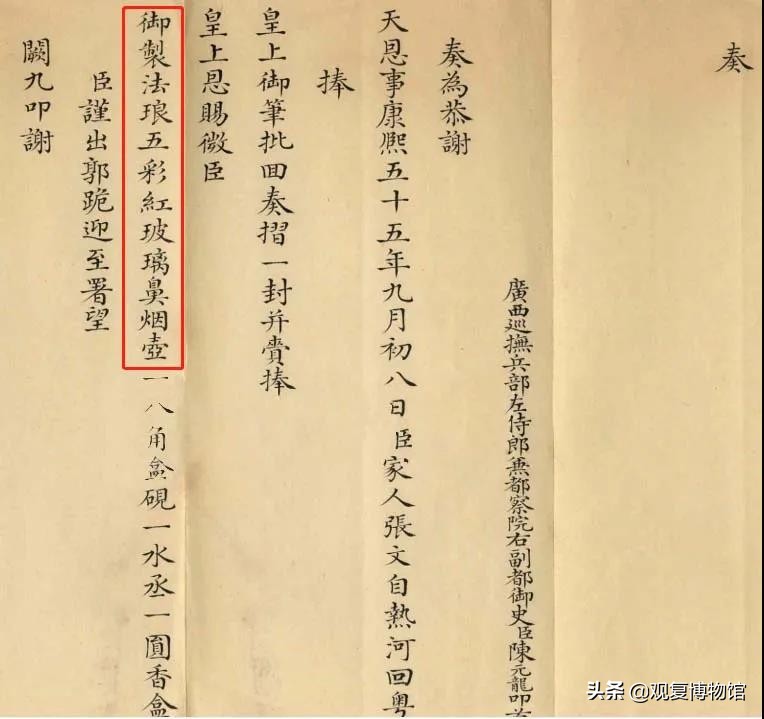 奏
廣西巡撫兵部左侍郎兼都察院右副都御史臣陳元龍叩
奏為恭謝
天恩事康熙五十五年九月初八日臣家人張文自熱河回粵
捧
皇上御筆批回奏摺一封并賫捧
皇上恩賜微臣
御製法琅五彩紅玻璃鼻烟壺一八角盒硯一水丞一圓香盒
臣謹出郭跪迎至署望
闕九叩謝
头条 @观复博物馆